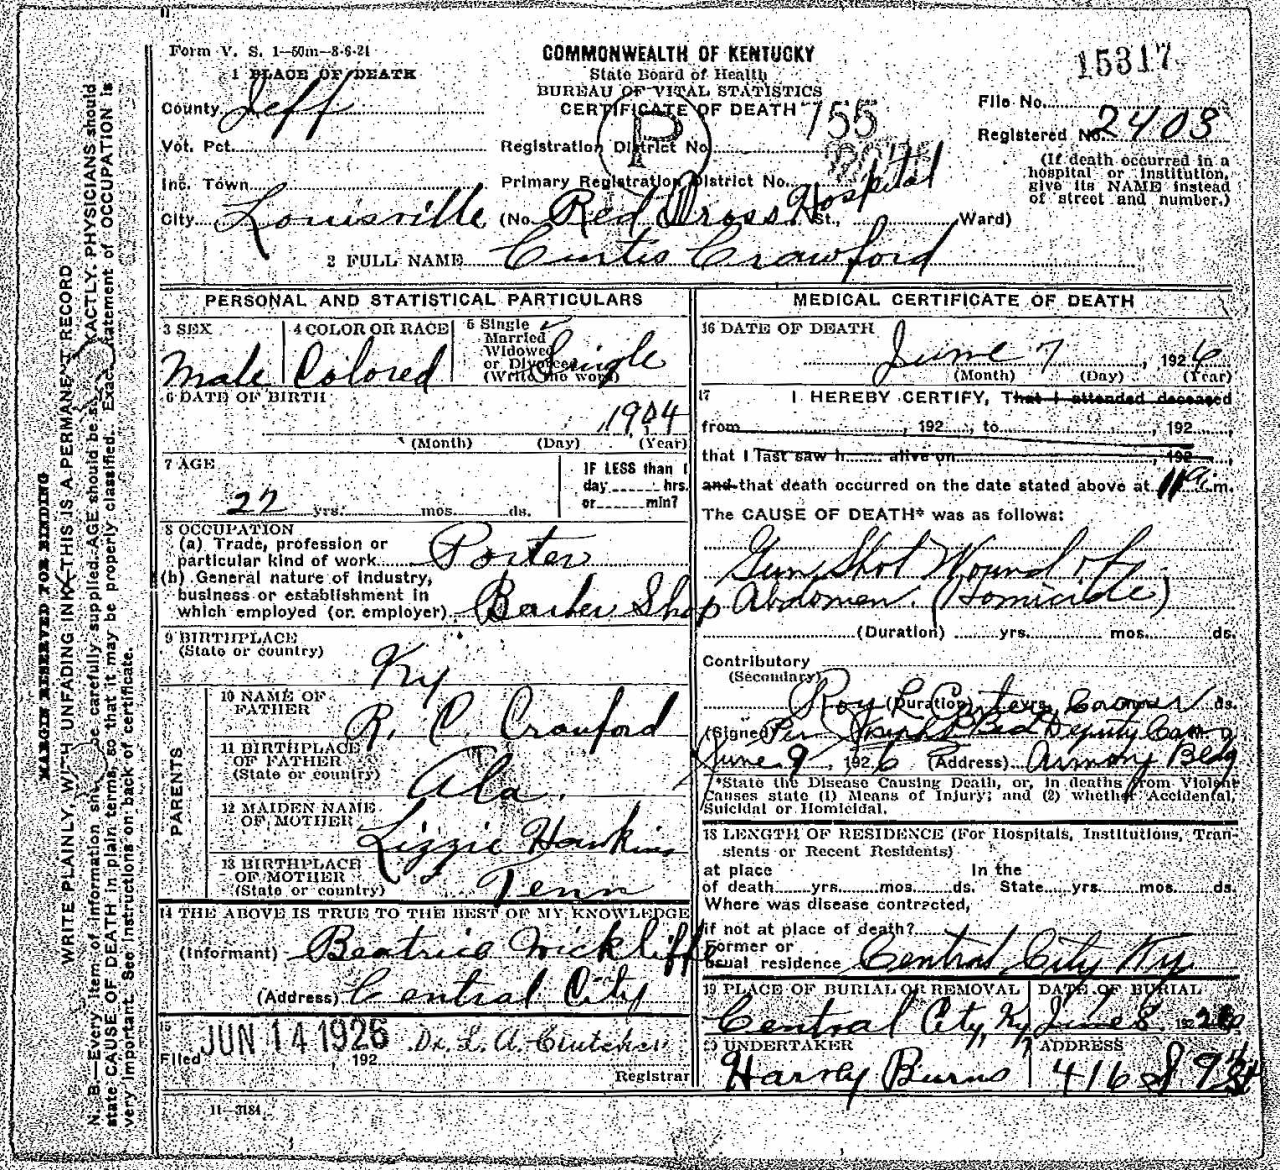 Form V. S. 1—50m—8-6-21
COMMONWEALTH OF KENTUCKY
State Board of Health
BUREAU OF VITAL STATISTICS
CERTIFICATE OF DEATH
15317
File No.
Registered No. 2403
(If death occurred in a
hospital or institution,
give its NAME instead
of street and number.)
1 PLACE OF DEATH
County Jeff
Vot. Pct.
Registration District No. 755
P
Inc. Town
Primary Registration District No.
City Louisville (No. Red Cross Hospital St., Ward)
2 FULL NAME Curtis Crawford
PERSONAL AND STATISTICAL PARTICULARS
3 SEX
Male
4 COLOR OR RACE
Colored
5 Single
Married
Widowed
or Divorced
(Write the word)
Single
6 DATE OF BIRTH
1904
(Month) (Day) (Year)
7 AGE
22 yrs. mos. ds.
IF LESS than 1
day hrs.
or min?
8 OCCUPATION
(a) Trade, profession or
particular kind of work Porter
(b) General nature of industry,
business or establishment in
which employed (or employer) Barber Shop
9 BIRTHPLACE
(State or country)
Ky
PARENTS
10 NAME OF
FATHER
R. C Crawford
11 BIRTHPLACE
OF FATHER
(State or country)
Ala.
12 MAIDEN NAME
OF MOTHER
Lizzie Hawkins
13 BIRTHPLACE
OF MOTHER
(State or country)
Tenn
14 THE ABOVE IS TRUE TO THE BEST OF MY KNOWLEDGE
(Informant) Beatrice Wickliffe
(Address) Central City
15
Filed JUN 14 1926 192 Dr. L. A.
Registrar
11—3184
MEDICAL CERTIFICATE OF DEATH
16 DATE OF DEATH
June 7, 1926
(Month) (Day) (Year)
17 I HEREBY CERTIFY, That I attended deceased
from , 192 , to , 192 ,
that I last saw h alive on , 192 ,
and that death occurred on the date stated above at 11 a.m.
The CAUSE OF DEATH* was as follows:
Gun Shot Wound of
Abdomen. (Homicide)
(Duration) yrs. mos. ds.
Contributory
(Secondary)
(Duration) yrs. ds.
Roy L Carter, Coroner
(Signed) Per Deputy Cor
June 9 1926 (Address) Armory Bldg
*State the Disease Causing Death, or, in deaths from Violent
Causes state (1) Means of Injury; and (2) whether Accidental,
Suicidal or Homicidal.
18 LENGTH OF RESIDENCE (For Hospitals, Institutions, Tran-
sients or Recent Residents)
at place In the
of death yrs. mos. ds. State yrs. mos. ds.
Where was disease contracted,
if not at place of death?
Former or
usual residence Central City Ky
19 PLACE OF BURIAL OR REMOVAL
Central City, Ky
DATE OF BURIAL
June 8 1926
20 UNDERTAKER
Harvey Burns
ADDRESS
416 S 9th St
MARGIN RESERVED FOR BINDING
WRITE PLAINLY, WITH UNFADING INK—THIS IS A PERMANENT RECORD
N. B.—Every item of information should be carefully supplied. AGE should be stated EXACTLY. PHYSICIANS should
state CAUSE OF DEATH in plain terms, so that it may be properly classified. Exact statement of OCCUPATION is
very important. See instructions on back of certificate.